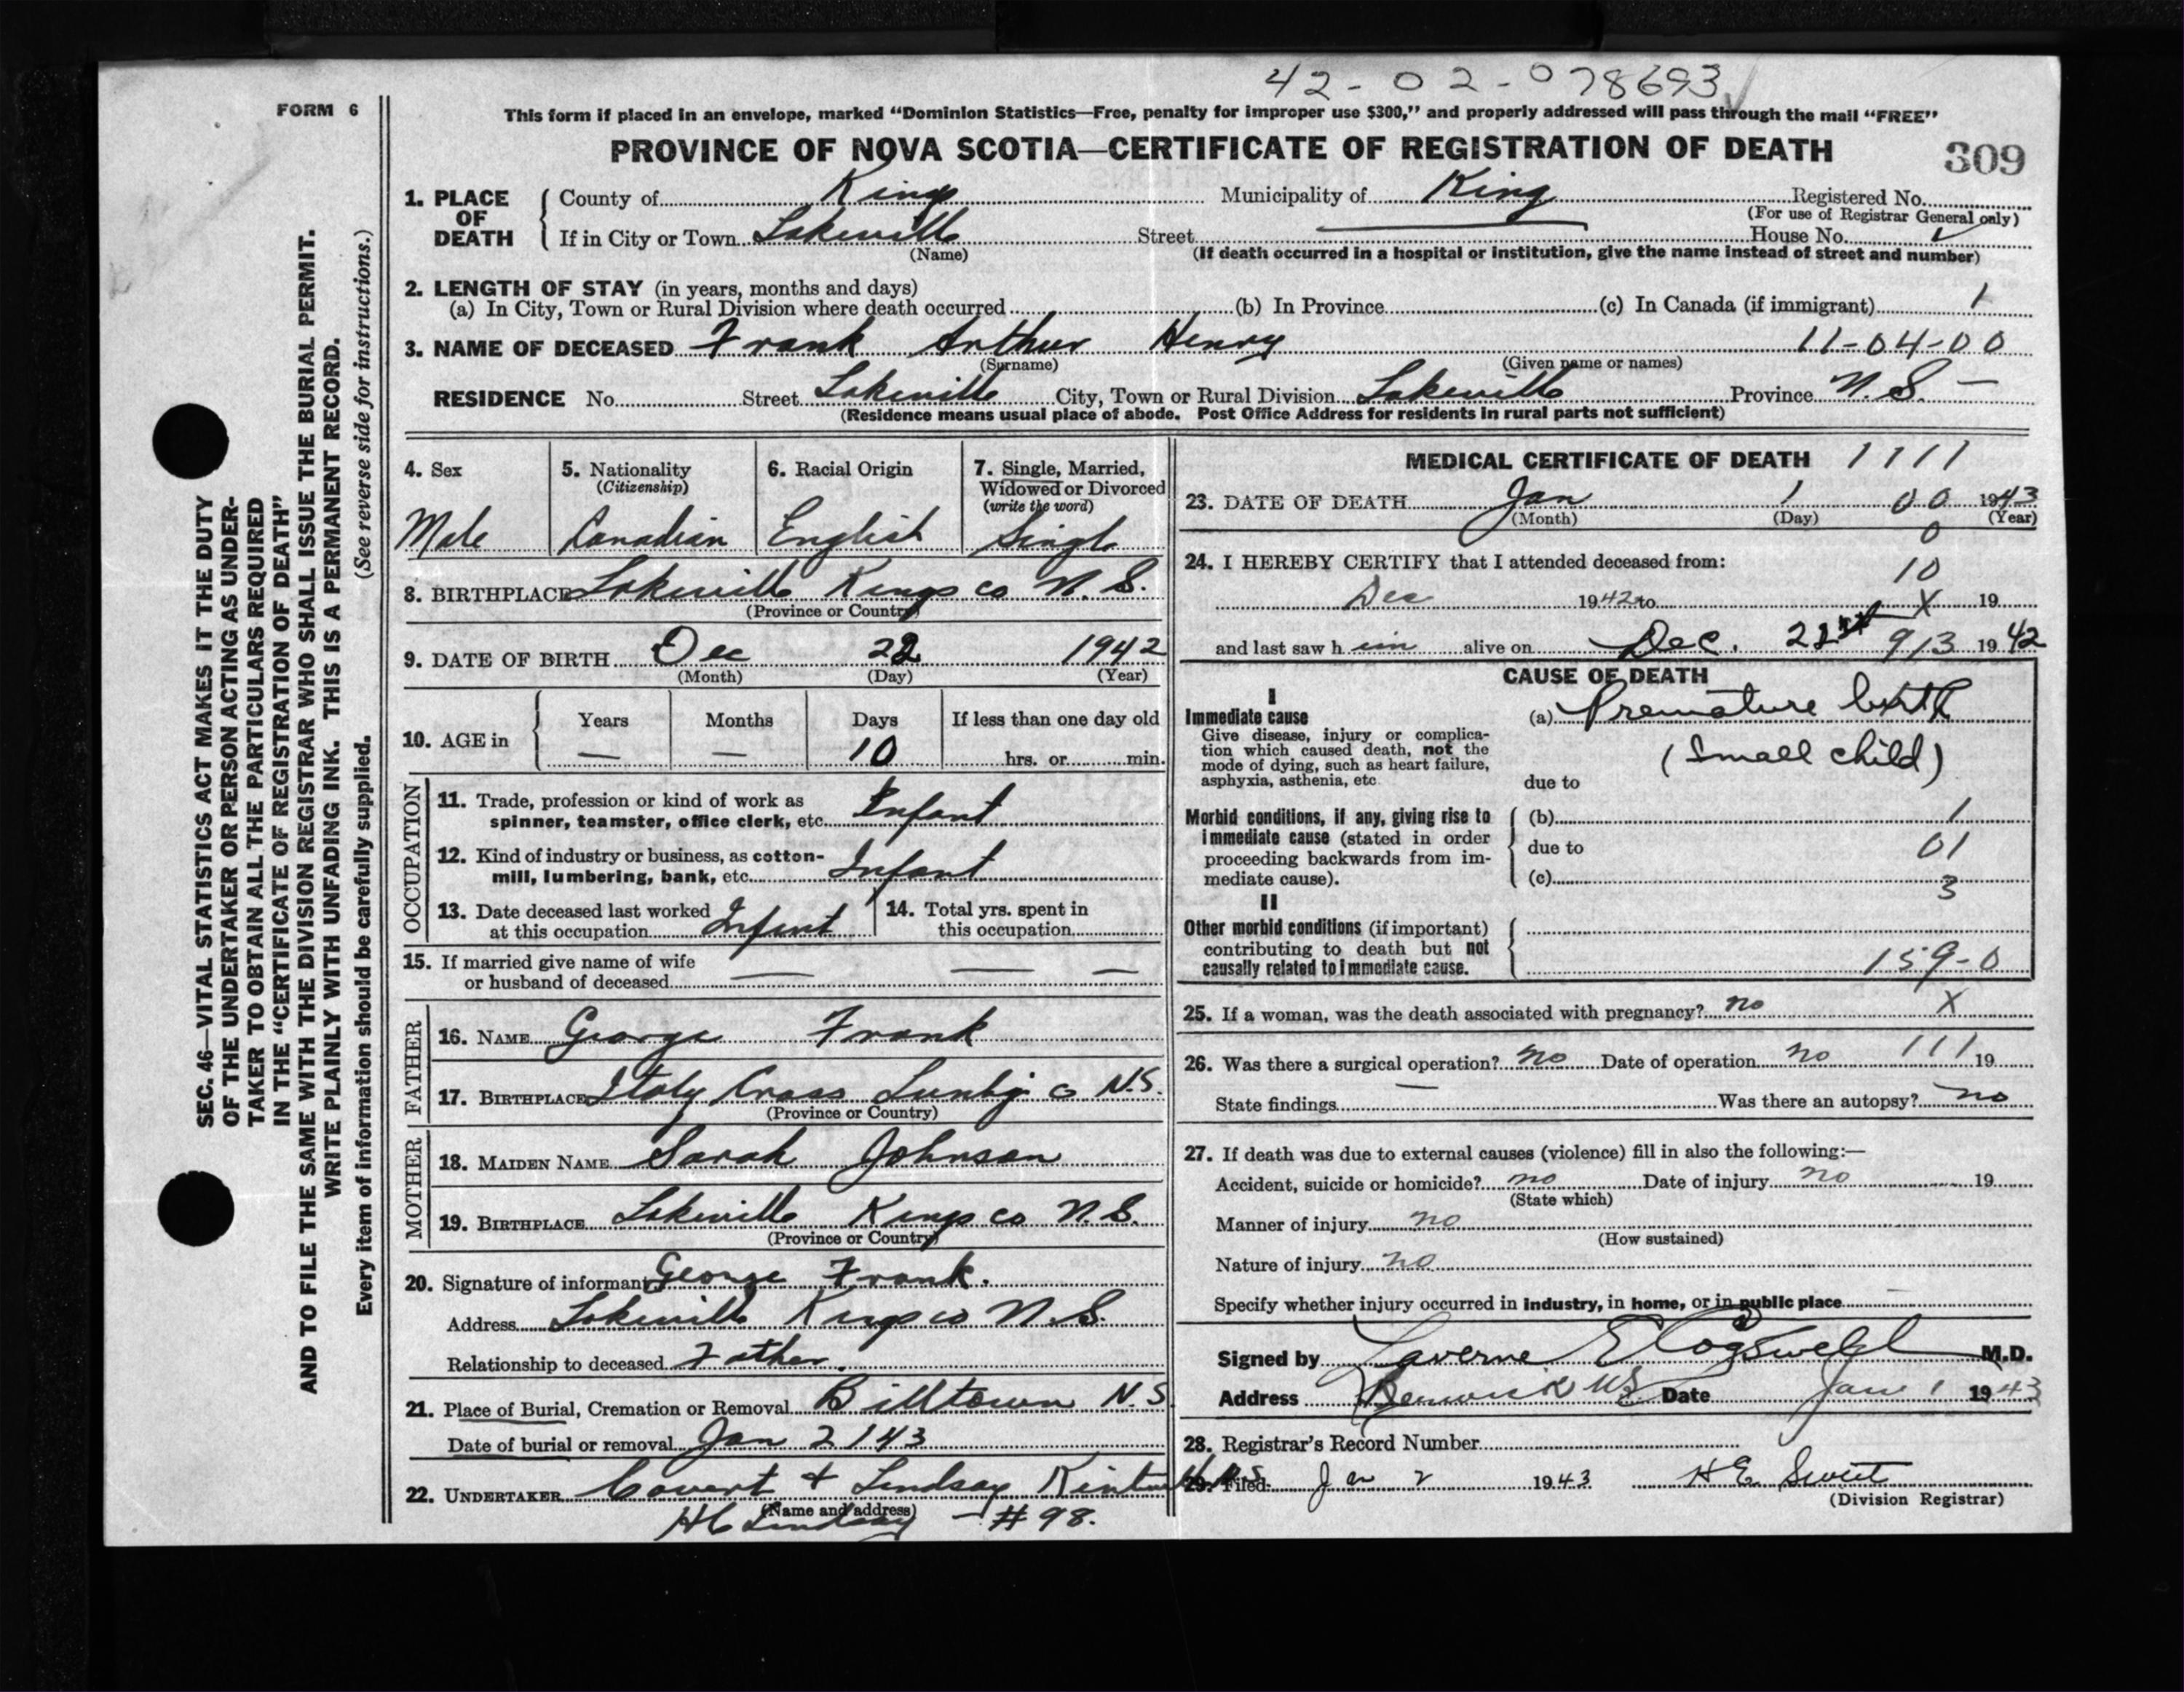 42-02-078693
FORM 6
This form if placed in an envelope, marked “Dominion Statistics—Free, penalty for improper use $300,” and properly addressed will pass through the mail “FREE”
PROVINCE OF NOVA SCOTIA—CERTIFICATE OF REGISTRATION OF DEATH 309
1. PLACE OF DEATH County of Kings Municipality of King Registered No.
(For use of Registrar General only)
If in City or Town Lakeville Street House No.
(Name) (If death occurred in a hospital or institution, give the name instead of street and number)
2. LENGTH OF STAY (in years, months and days)
(a) In City, Town or Rural Division where death occurred (b) In Province (c) In Canada (if immigrant) 1
3. NAME OF DECEASED Frank Arthur Henry 11-04-00
(Surname) (Given name or names)
RESIDENCE No. Street Lakeville City, Town or Rural Division Lakeville Province N.S. —
(Residence means usual place of abode. Post Office Address for residents in rural parts not sufficient)
4. Sex Male
5. Nationality (Citizenship) Canadian
6. Racial Origin English
7. Single, Married, Widowed or Divorced (write the word) Single
8. BIRTHPLACE Lakeville Kings co N.S.
(Province or Country)
9. DATE OF BIRTH Dec 22 1942
(Month) (Day) (Year)
10. AGE in Years — Months — Days 10 If less than one day old hrs. or min.
OCCUPATION
11. Trade, profession or kind of work as
spinner, teamster, office clerk, etc. Infant
12. Kind of industry or business, as cotton-
mill, lumbering, bank, etc. Infant
13. Date deceased last worked
at this occupation Infant
14. Total yrs. spent in
this occupation
15. If married give name of wife
or husband of deceased — — —
FATHER
16. NAME George Frank
17. BIRTHPLACE Italy Cross Lunbg co N.S.
(Province or Country)
MOTHER
18. MAIDEN NAME Sarah Johnson
19. BIRTHPLACE Lakeville Kings co N.S.
(Province or Country)
20. Signature of informant George Frank.
Address Lakeville Kings co N.S.
Relationship to deceased Father.
21. Place of Burial, Cremation or Removal Billtown N.S
Date of burial or removal Jan 2/43
22. UNDERTAKER Covert & Lindsay
(Name and address)
HC Lindsay — #98.
MEDICAL CERTIFICATE OF DEATH 1111
23. DATE OF DEATH Jan 1 00 1943
(Month) (Day) (Year)
0
24. I HEREBY CERTIFY that I attended deceased from:
10
Dec 1942 to X 19
and last saw h im alive on Dec. 913 1942
CAUSE OF DEATH
I
Immediate cause
Give disease, injury or complica-
tion which caused death, not the
mode of dying, such as heart failure,
asphyxia, asthenia, etc.
(a) Premature birth
(Small child)
due to
Morbid conditions, if any, giving rise to
immediate cause (stated in order
proceeding backwards from im-
mediate cause).
(b) 1
due to 01
(c)
3
II
Other morbid conditions (if important)
contributing to death but not
causally related to immediate cause.
159-0
25. If a woman, was the death associated with pregnancy? no X
26. Was there a surgical operation? no Date of operation no 111 19
State findings — Was there an autopsy? no
27. If death was due to external causes (violence) fill in also the following:—
Accident, suicide or homicide? no Date of injury no 19
(State which)
Manner of injury no
(How sustained)
Nature of injury no
Specify whether injury occurred in industry, in home, or in public place
Signed by Laverne E Cogswell M.D.
Address Berwick NS Date Jan 1 1943
28. Registrar's Record Number
29. Filed Jan 2 1943 H E Swet
(Division Registrar)
SEC. 46—VITAL STATISTICS ACT MAKES IT THE DUTY
OF THE UNDERTAKER OR PERSON ACTING AS UNDER-
TAKER TO OBTAIN ALL THE PARTICULARS REQUIRED
IN THE “CERTIFICATE OF REGISTRATION OF DEATH”
AND TO FILE THE SAME WITH THE DIVISION REGISTRAR WHO SHALL ISSUE THE BURIAL PERMIT.
WRITE PLAINLY WITH UNFADING INK. THIS IS A PERMANENT RECORD.
Every item of information should be carefully supplied. (See reverse side for instructions.)